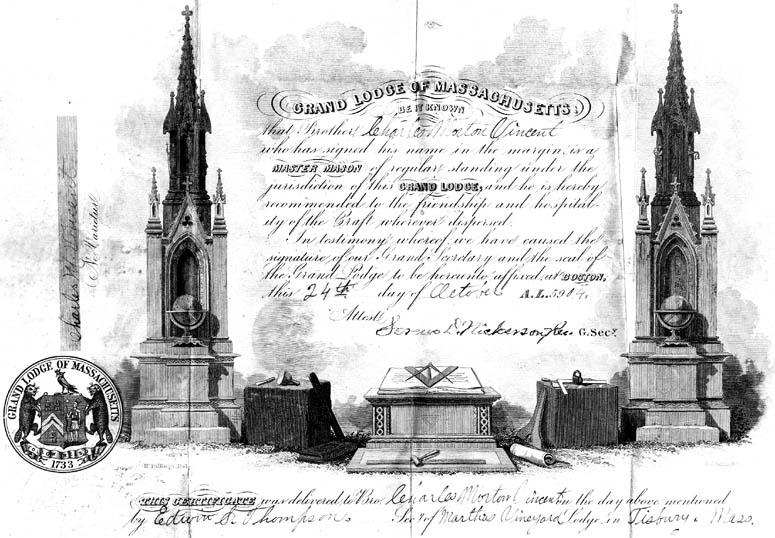 GRAND LODGE OF MASSACHUSETTS.
BE IT KNOWN
that Brother Charles Morton Vincent
who has signed his name in the margin, is a
MASTER MASON of regular standing under the
jurisdiction of this GRAND LODGE, and he is hereby
recommended to the friendship and hospital-
ity of the Craft wherever dispersed.
In testimony whereof we have caused the
signature of our Grand Secretary and the seal of
the Grand Lodge to be hereunto affixed, at BOSTON,
this 24th day of October A.L. 5904.
Attest
Sereno D. Nickerson, Rec. G. Secy.
Charles M. Vincent
GRAND LODGE OF MASSACHUSETTS
1733
THIS CERTIFICATE was delivered to Bro. Charles Morton Vincent the day above mentioned
by Edwin R. Thompson Secy of Marthas Vineyard Lodge, in Tisbury, Mass.